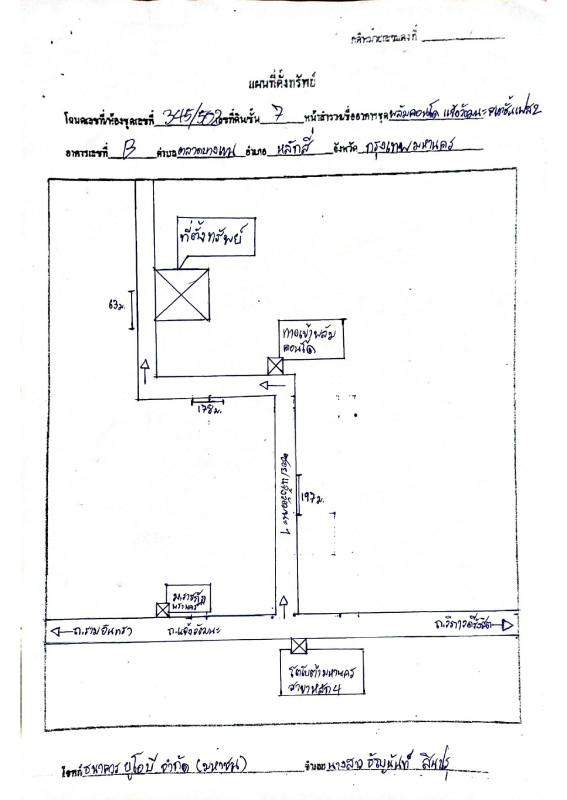 แผนที่ตั้งทรัพย์
โฉนดเลขที่/ห้องชุดเลขที่ 345/502 เลขที่ดิน/ชั้น 7 หน้าสำรวจ/ชื่ออาคารชุด พลัมคอนโด แจ้งวัฒนะ สเตชั่น เฟส 2
อาคารเลขที่ B ตำบล ตลาดบางเขน อำเภอ หลักสี่ จังหวัด กรุงเทพมหานคร
ที่ตั้งทรัพย์
63 ม.
ทางเข้าพลัม
คอนโด
178 ม.
ซอยแจ้งวัฒนะ 1
197 ม.
ม.ราชภัฏ
พระนคร
ถ.รามอินทรา
ถ.แจ้งวัฒนะ
ถ.วิภาวดีรังสิต
โตโยต้ามหานคร
สาขาหลัก 4
โจทก์ ธนาคาร ยูโอบี จำกัด (มหาชน)
จำเลย นางสาว ธัญนันท์